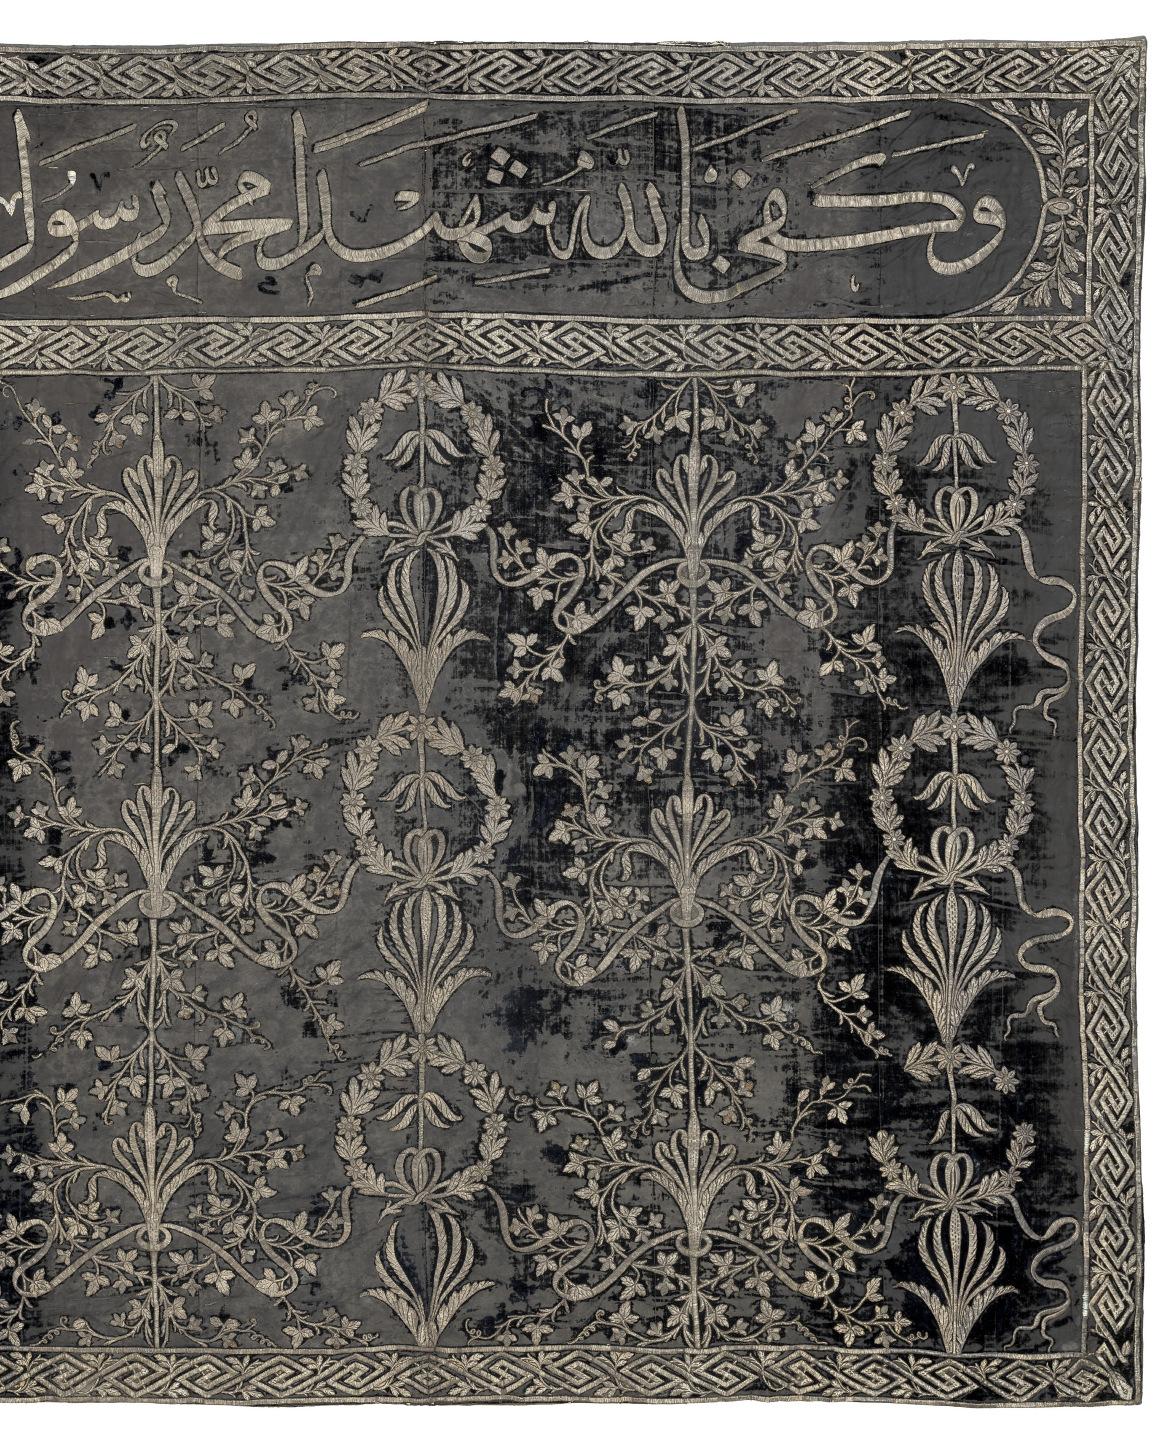 وكفى بالله شهيدا محمد رسول